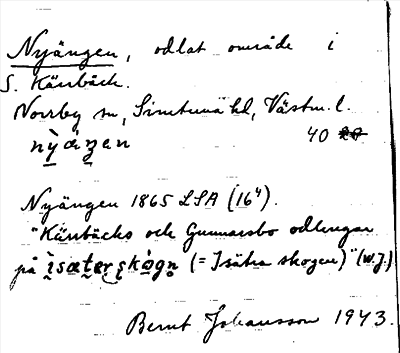 Nyängen, odlat område i
S. Kärrbäck.
Norrby sn, Simtuna hd, Västm. l.
nỳäŋen 40
Nyängen 1865 LSA (16⁴).
"Kärrbäcks och Gunnarsbo odlingar
på ìsætərskògn̥ (= Isätra skogen)" (W.J.)
Bernt Johansson 1943.